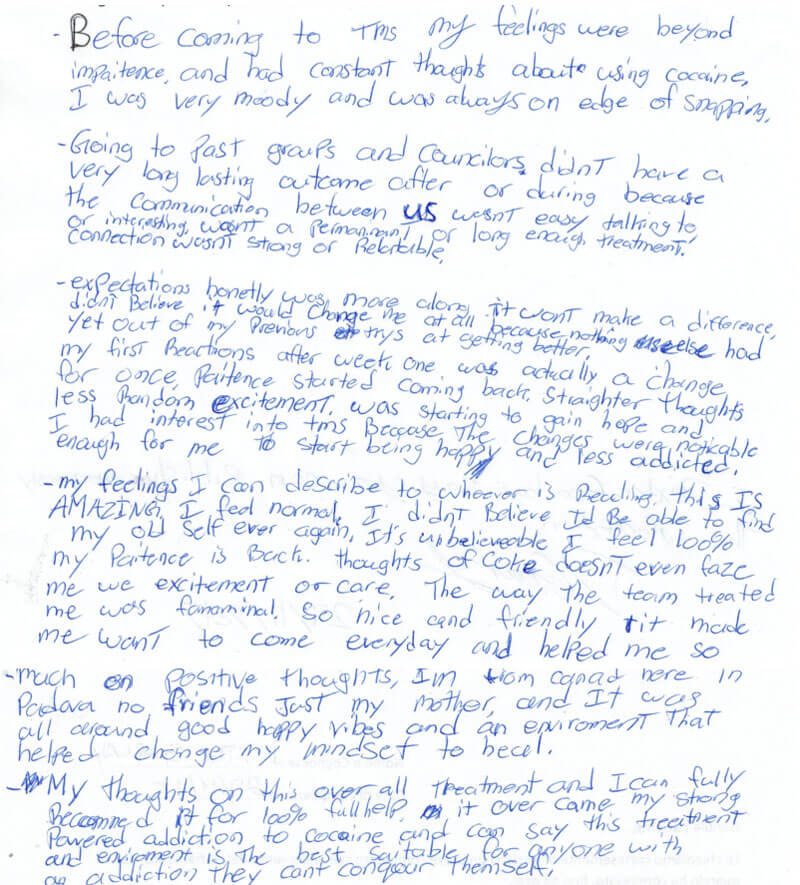 - Before coming to TMS my feelings were beyond
impaitence, and had constant thoughts about using cocaine,
I was very moody and was always on edge of snapping,
- Going to past groups and councilors, didnt have a
very long lasting outcome after or during because
the communication between us wasnt easy talking to,
or interesting, wasnt a permannant or long enough treatment.
connection wasnt strong or Relatable,
- expectations honetly was more along it wont make a difference,
didnt Believe it would change me at all because nothing else had
yet out of my Previous trys at getting better,
my first Reactions after week one was actually a change
for once, Paitence started coming back, Straighter thoughts
less Random excitement, was starting to gain hope and
I had interest into tms Because The changes were noticable
enough for me to start being happy and less addicted,
- my feelings I can describe to whoever is Reading, this IS
AMAZING, I feel normal, I didnt Believe Id Be able to find
my old self ever again, It's unbelieveable I feel 100%
my Paitence is Back. thoughts of coke doesnt even faze
me we excitement or care, The way The team treated
me was fanominal, so nice and friendly it made
me want to come everyday and helped me so
- much on positive thoughts, Im here in
Padava no friends Just my mother, and It was
all around good happy vibes and an enviroment that
helped change my mindset to heal.
- My thoughts on this over all treatment and I can fully
Recomned it for 100% full help, it over came my strong
Powered addiction to cocaine and can say this treeitment
and enviroment is The best suitable for anyone with
an addiction They cant conquour Themself,